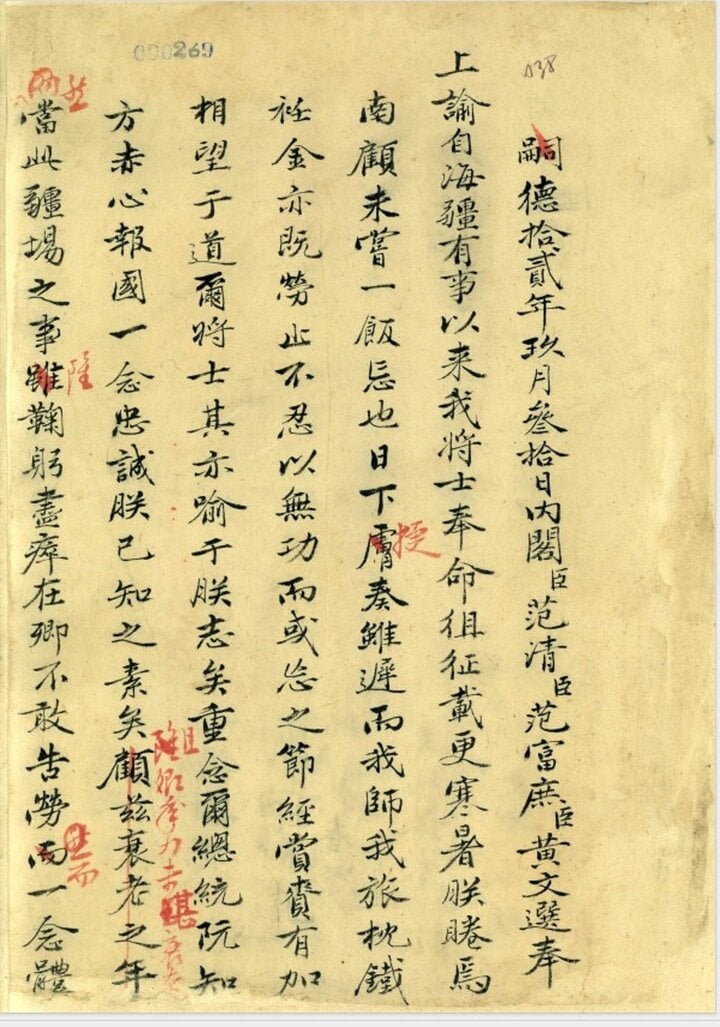 000269
038
嗣德拾貳年玖月叄拾日内閣臣范清臣范富庶臣黃文選奉
上諭自海疆有事以来我將士奉命徂征載更寒暑朕睠焉
南顧未嘗一飯忘也日下膚奏雖遲而我師我旅枕鐵
授
衽金亦既勞止不忍以無功而或忘之節經賞賚有加
相望于道爾將士其亦喻于朕志矣重念爾總統阮知
方赤心報國一念忠誠朕已知之素矣顧茲衰老之年
且
卿年力未堪衰老
當此疆場之事雖鞠躬盡瘁在卿不敢告勞而一念體
然
陸
而